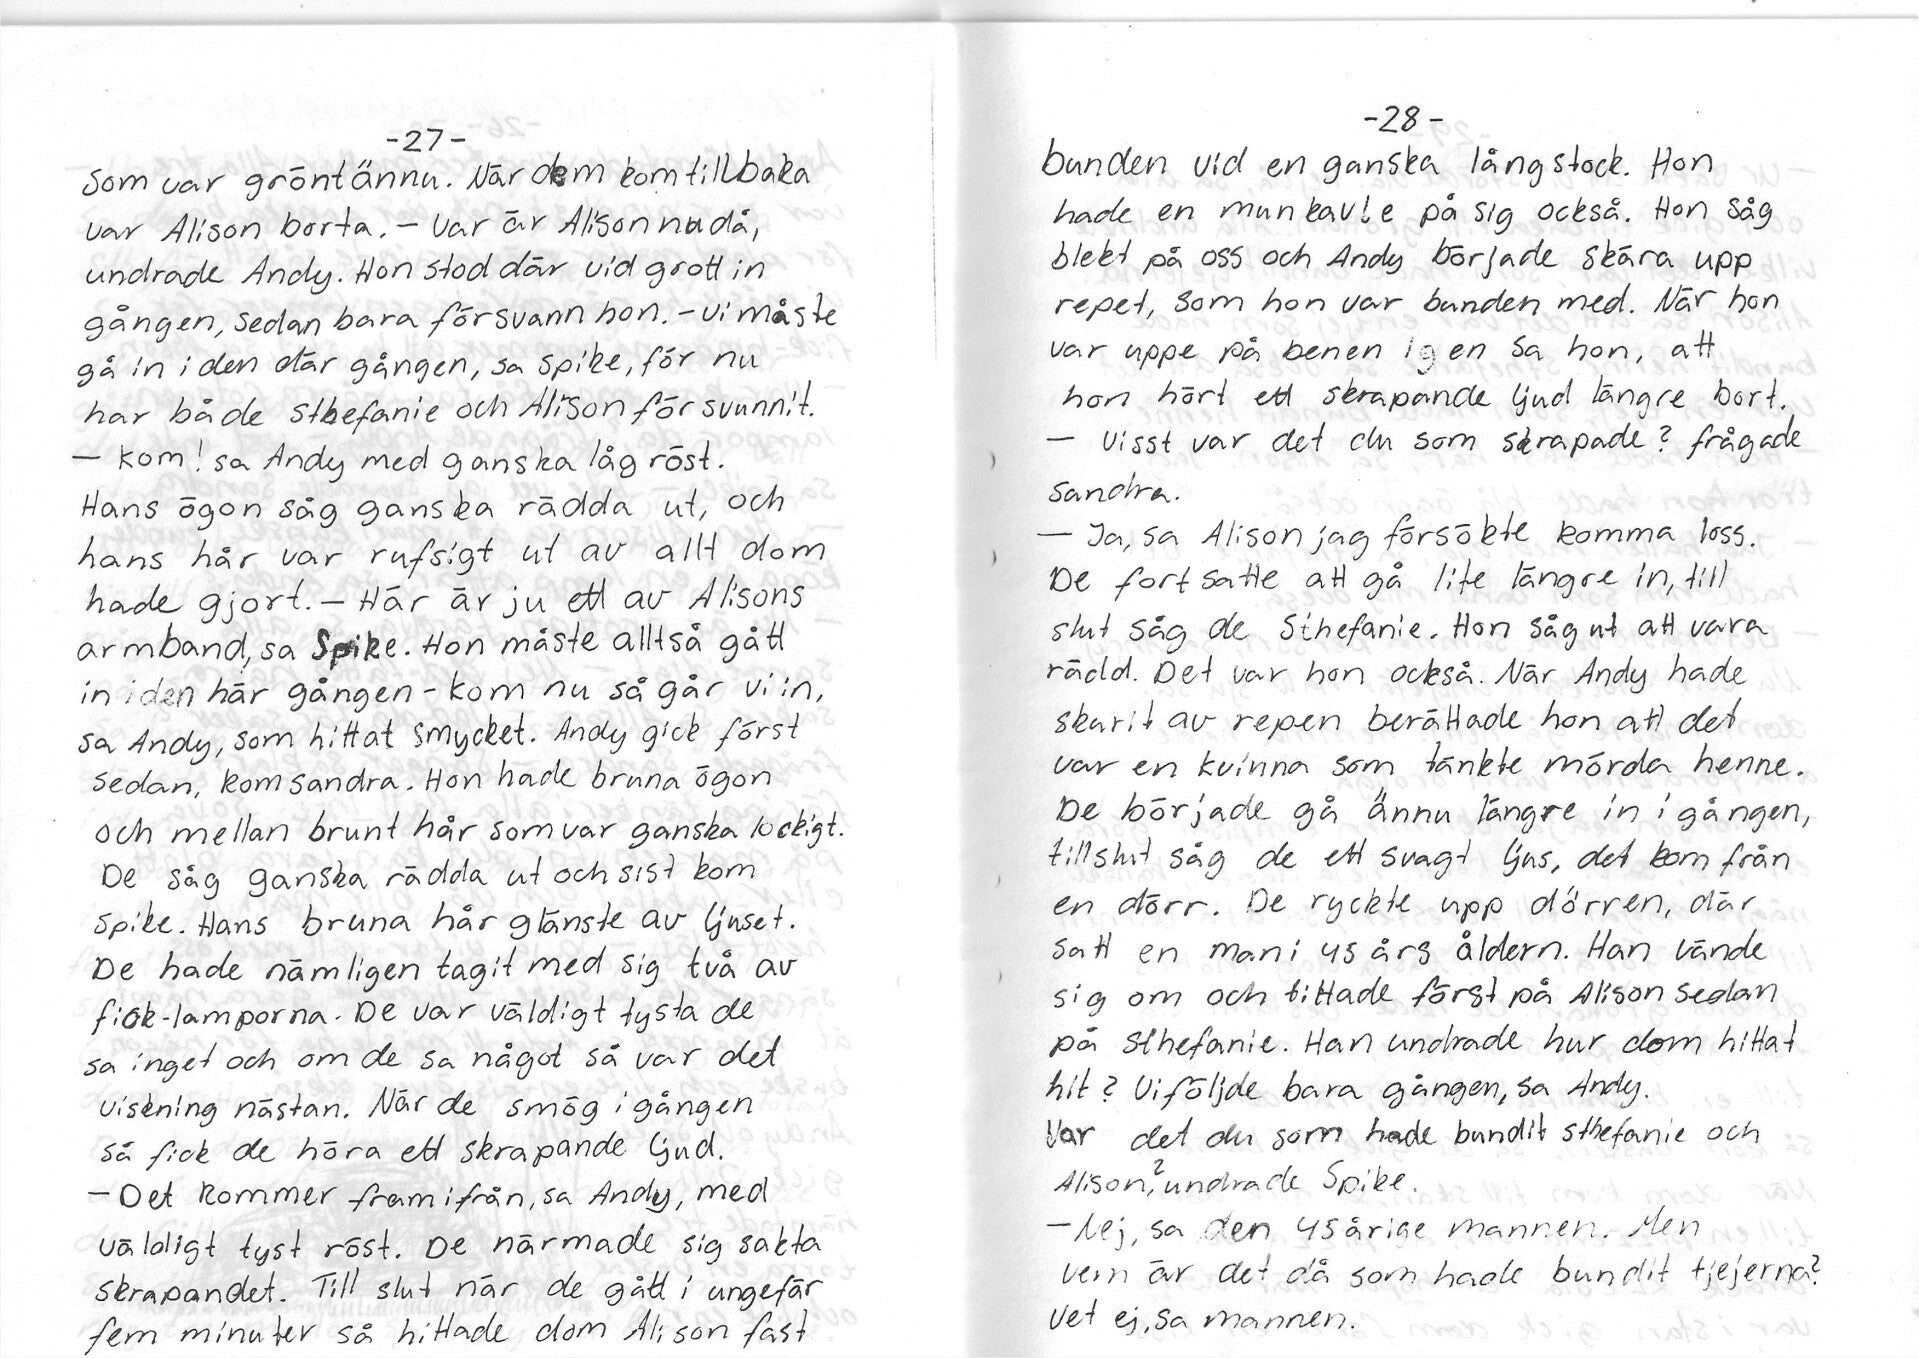 -27-
som var grönt ännu. När dem kom tillbaka
var Alison borta. – Var är Alison nudå,
undrade Andy. Hon stod där vid grott in
gången, sedan bara försvann hon. – Vi måste
gå in i den där gången, sa spike, för nu
har både sthefanie och Alison försvunnit.
– kom! sa Andy med ganska låg röst.
Hans ögon såg ganska rädda ut, och
hans hår var rufsigt ut av allt dom
hade gjort. – Här är ju ett av Alisons
armband, sa Spike. Hon måste alltså gått
in i den här gången – kom nu så går vi in,
sa Andy, som hittat smycket. Andy gick först
sedan, kom sandra. Hon hade bruna ögon
och mellan brunt hår som var ganska lockigt.
De såg ganska rädda ut och sist kom
spike. Hans bruna hår glänste av ljuset.
De hade nämligen tagit med sig två av
fick-lamporna. De var väldigt tysta de
sa inget och om de sa något så var det
viskning nästan. När de smög i gången
så fick de höra ett skrapande ljud.
– Det kommer framifrån, sa Andy, med
väldigt tyst röst. De närmade sig sakta
skrapandet. Till slut när de gått i ungefär
fem minuter så hittade dom Alison fast
-28-
bunden vid en ganska lång stock. Hon
hade en munkavle på sig också. Hon såg
blekt på oss och Andy började skära upp
repet, som hon var bunden med. När hon
var uppe på benen igen sa hon, att
hon hört ett skrapande ljud längre bort.
– Visst var det du som skrapade? frågade
sandra.
– Ja, sa Alison jag försökte komma loss.
De fortsatte att gå lite längre in, till
slut såg de Sthefanie. Hon såg ut att vara
rädd. Det var hon också. När Andy hade
skarit av repen berättade hon att det
var en kvinna som tänkte mörda henne.
De började gå ännu längre in i gången,
tillslut såg de ett svagt ljus, det kom från
en dörr. De ryckte upp dörren, där
satt en man i 45 års åldern. Han vände
sig om och tittade först på Alison sedan
på sthefanie. Han undrade hur dom hittat
hit? Vi följde bara gången, sa Andy.
Var det du som hade bundit sthefanie och
Alison,? undrade Spike.
– Nej, sa den 45 årige mannen. Men
vem är det då som hade bundit tjejerna?
Vet ej, sa mannen.